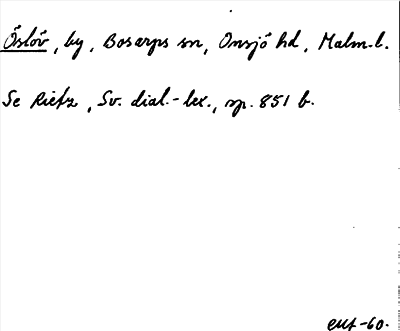 Öslöv, by, Bosarps sn, Onsjö hd, Malm. l.
Se Rietz, Sv. dial.-lex., sp. 851 b.
EHT -60.